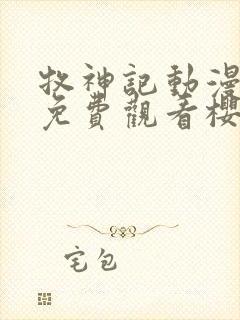 牧神記動漫
免費觀看櫻
宅包